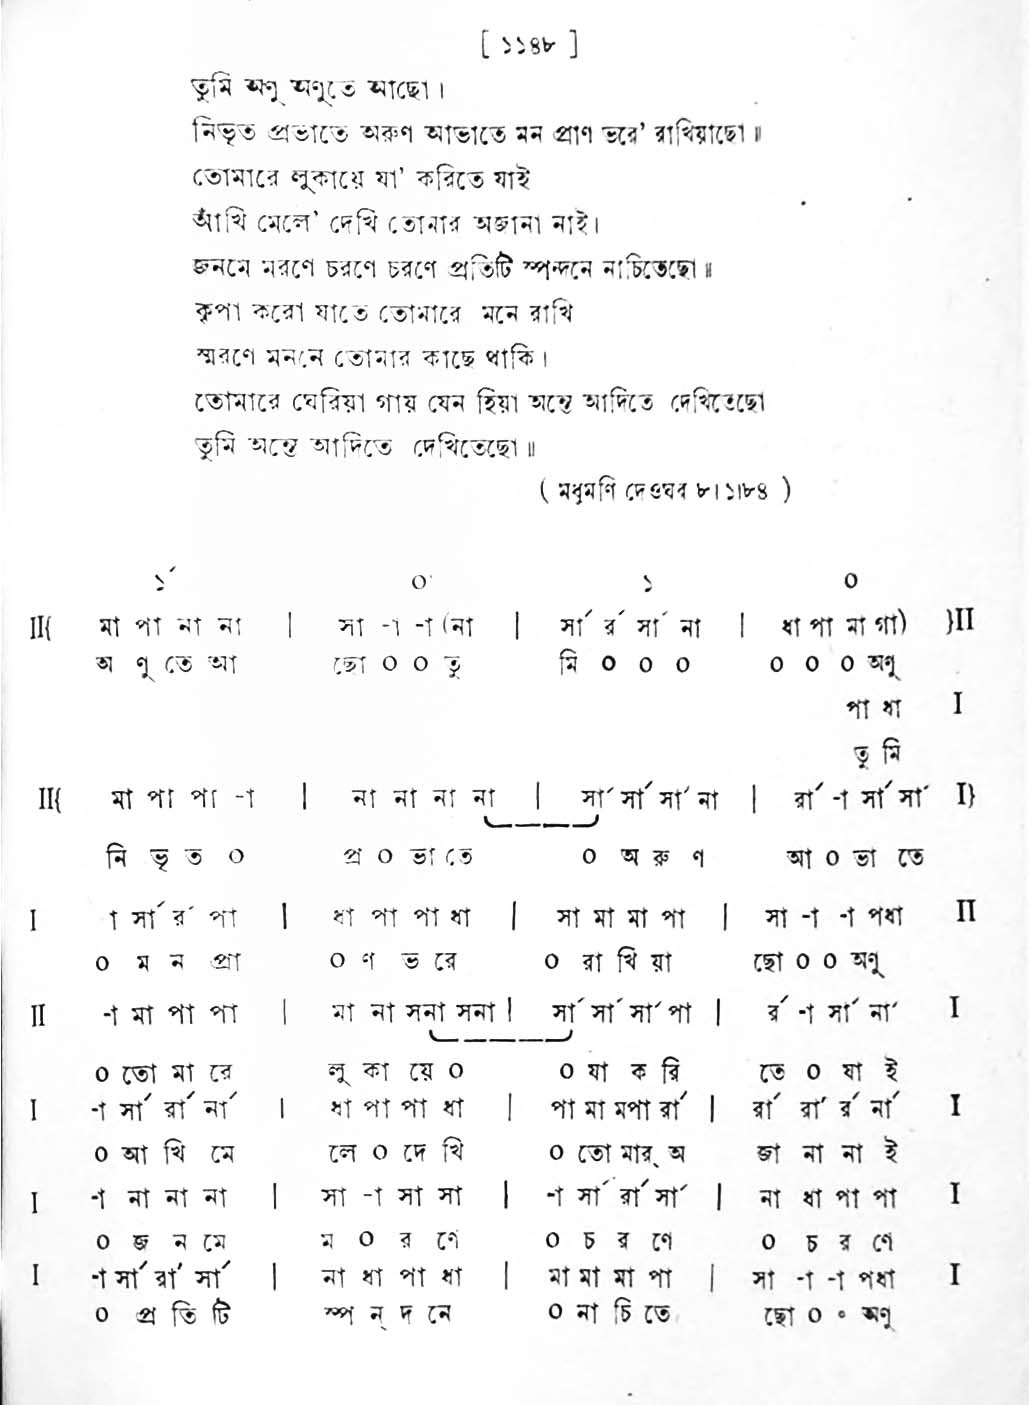 [ ১১৪৮ ]
তুমি অণু অণুতে আছো।
নিভৃত প্রভাতে অরুণ আভাতে মন প্রাণ ভরে' রাখিয়াছো॥
তোমারে লুকায়ে যা' করিতে যাই
আঁখি মেলে' দেখি তোমার অজানা নাই।
জনমে মরণে চরণে চরণে প্রতিটি স্পন্দনে নাচিতেছো॥
কৃপা করো যাতে তোমারে মনে রাখি
স্মরণে মননে তোমার কাছে থাকি।
তোমারে ঘেরিয়া গায় যেন হিয়া অন্তে আদিতে দেখিতেছো
তুমি অন্তে আদিতে দেখিতেছো॥
( মধুমণি দেওঘর ৮।১।৮৪ )
১́ ০ ১ ০
II{ মা পা না না | সা -া -া (না | র্সা র্র র্সা না | ধা পা মা গা) }II
অ ণু তে আ ছো ০ ০ তু মি ০ ০ ০ ০ ০ ০ অণু
পা ধা I
তু মি
II{ মা পা পা -া | না না না না | র্সা র্সা র্সা না | র্রা -া র্সা র্সা I}
নি ভৃ ত ০ প্র ০ ভা তে ০ অ রু ণ আ ০ ভা তে
I া র্সা র্র পা | ধা পা পা ধা | সা মা মা পা | সা -া -া পধা II
০ ম ন প্রা ০ ণ ভ রে ০ রা খি য়া ছো ০ ০ অণু
II -া মা পা পা | মা না সনা সনা | র্সা র্সা র্সা পা | র্র -া র্সা র্না I
০ তো মা রে লু কা য়ে ০ ০ যা ক রি তে ০ যা ই
I -া র্সা র্রা র্না | ধা পা পা ধা | পা মা মপা র্রা | র্রা র্রা র্র র্না I
০ আ খি মে লে ০ দে খি ০ তো মার্ অ জা না না ই
I -া না না না | সা -া সা সা | -া র্সা র্রা র্সা | না ধা পা পা I
০ জ ন মে ম ০ র ণে ০ চ র ণে ০ চ র ণে
I -া র্সা র্রা র্সা | না ধা পা ধা | মা মা মা পা | সা -া -া পধা I
০ প্র তি টি স্প ন্ দ নে ০ না চি তে ছো ০ ০ অণু